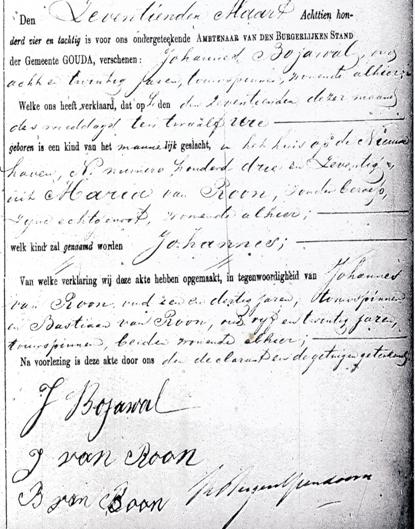 Den Zeventienden Maart Achttien hon-
derd vier en tachtig is voor ons ondergeteekende AMBTENAAR VAN DEN BURGERLIJKEN STAND
der Gemeente GOUDA, verschenen: Johannes Bojawal, oud
acht en twintig jaren, touwspinner, wonende alhier;
Welke ons heeft verklaard, dat op den zeventienden dezer maand
des middags ten twaalf ure
geboren is een kind van het mannelijk geslacht, in het huis op de Nieuwe
haven, N. numero honderd drie en zeventig
uit Maria van Roon, zonder beroep,
zijne echtgenoot, wonende alhier;
welk kind zal genaamd worden Johannes;
Van welke verklaring wij deze akte hebben opgemaakt, in tegenwoordigheid van Johannes
van Roon, oud zes en dertig jaren, touwspinner
en Bastiaan van Roon, oud vijf en twintig jaren,
touwspinner, beiden wonende alhier;
Na voorlezing is deze akte door ons den declarant en de getuigen geteekend
J Bojawal
J van Roon
B van Roon